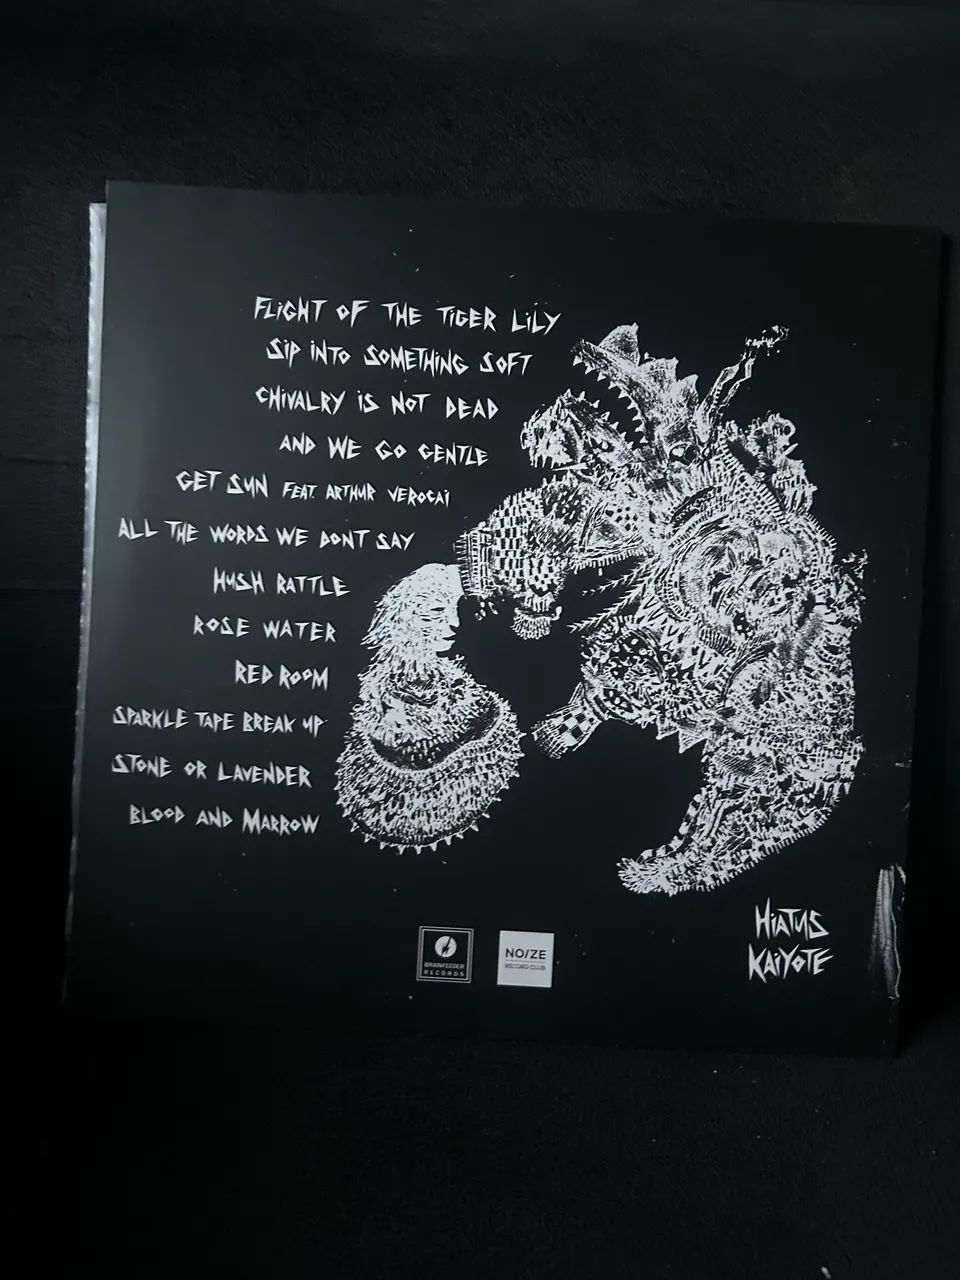 FLiGHT OF THE TiGER LiLY
SiP iNTO SOMETHiNG SOFT
CHiVALRY iS NOT DEAD
AND WE GO GENTLE
GET SUN FEAT. ARTHUR VEROCAi
ALL THE WORDS WE DONT SAY
HUSH RATTLE
ROSE WATER
RED ROOM
SPARKLE TAPE BREAK UP
STONE OR LAVENDER
BLOOD AND MARROW
HiATUS
KAiYOTE
BRAINFEEDER
RECORDS
NO/ZE
RECORD CLUB